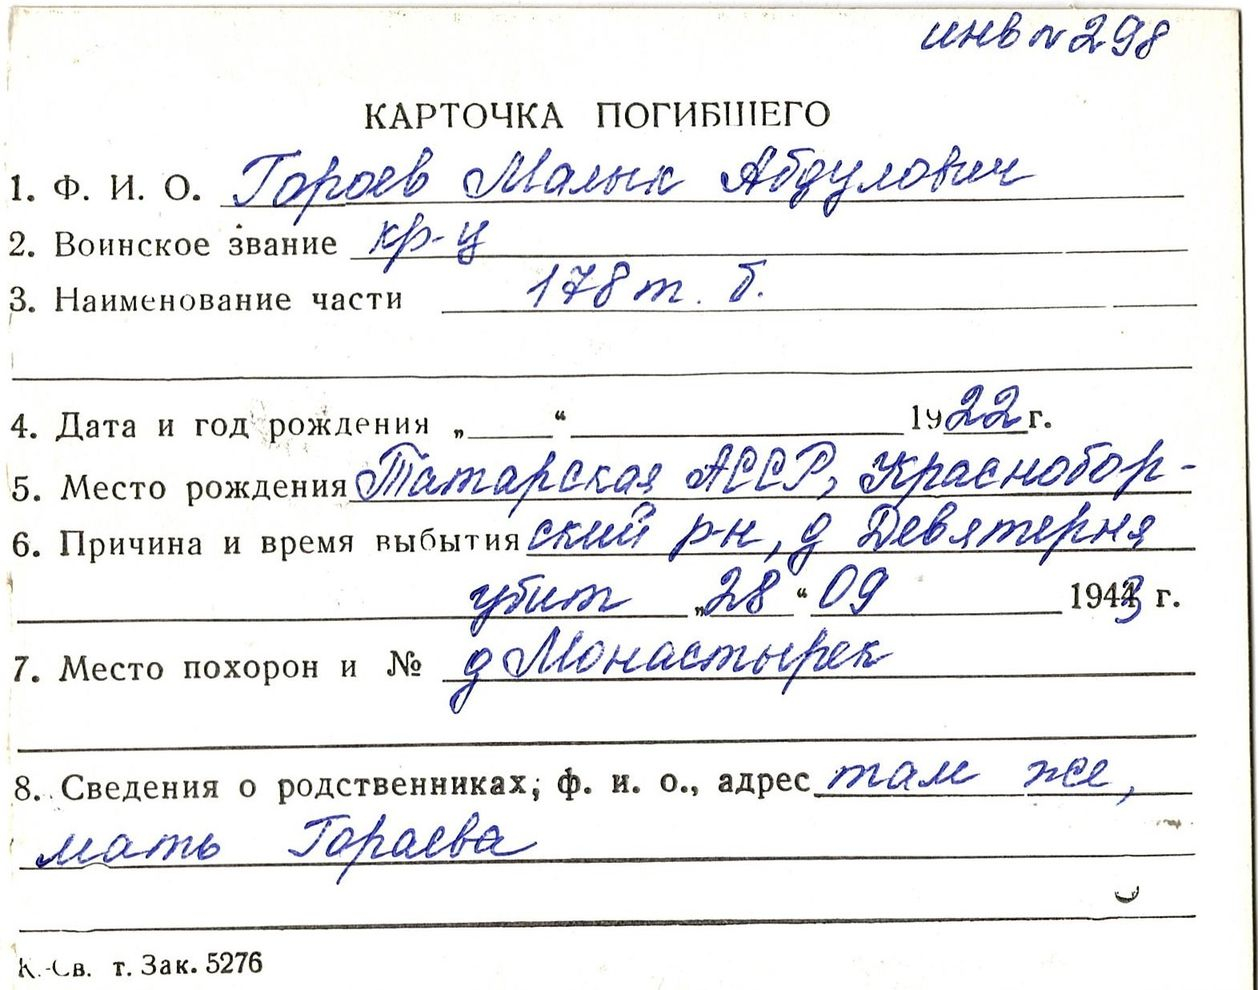 инв № 298
КАРТОЧКА ПОГИБШЕГО
1. Ф. И. О. Гороев Малык Абдулович
2. Воинское звание кр-ц
3. Наименование части 178 т. б.
4. Дата и год рождения „ “ 1922 г.
5. Место рождения Татарская АССР, Краснобор-
6. Причина и время выбытия ский р-н, д Девятерня
убит „28“ 09 1943 г.
7. Место похорон и № д Монастырек
8. Сведения о родственниках, ф. и. о., адрес там же,
мать Гораева
К.-Св. т. Зак. 5276